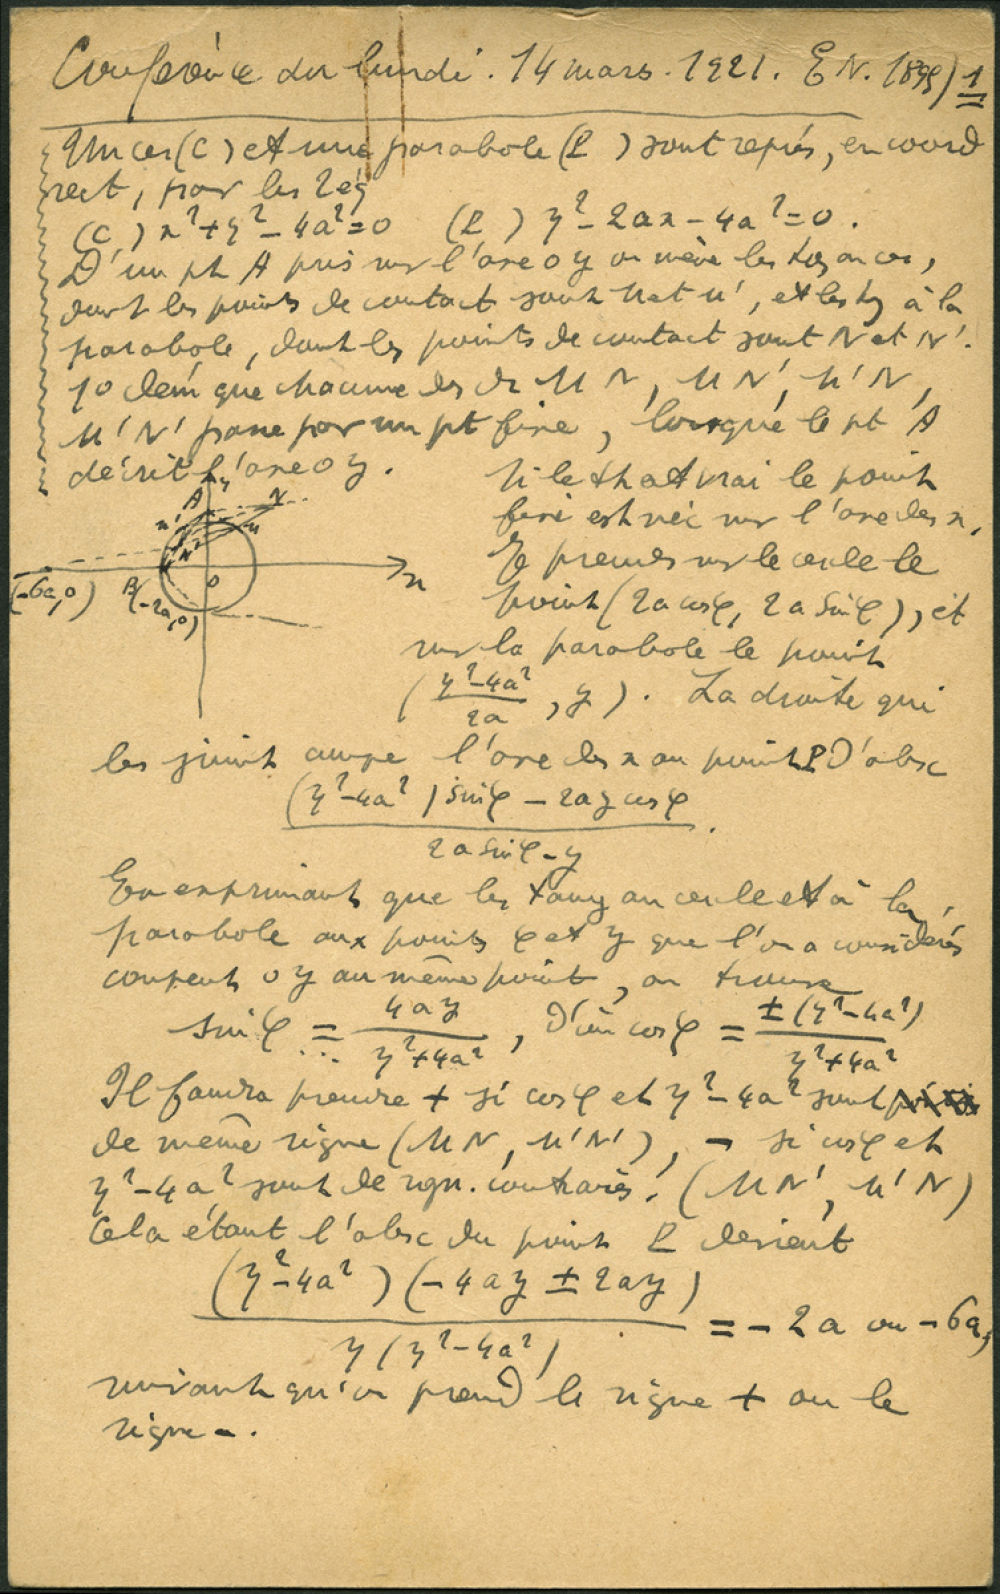 Conférence du lundi. 14 mars. 1921. E N. 1899) 1
Un cer (C) et une parabole (P) sont représ, en coord
rect, par les 2 éq
(C) x²+y²-4a²=0 (P) y²-2ax-4a²=0.
D'un pt A pris sur l'axe oy on mène les tg au cer,
dont les points de contact sont M et M', et les tg à la
parabole, dont les points de contact sont N et N'.
1º dém que chacune des dr MN, MN', M'N,
M'N' passe par un pt fixe, lorsque le pt A
décrit l'axe oy.
Si le th est vrai le point
fixe est néc sur l'axe des x.
Je prends sur le cercle le
point (2a cosφ, 2a sinφ), et
sur la parabole le point
(y²-4a² / 2a, y). La droite qui
y
A N
M' M
N'
x
(-6a,0) B(-2a,0) o
les joint coupe l'axe des x au point P d'absc
(y²-4a²) sinφ - 2ay cosφ / 2a sinφ - y.
En exprimant que les tang au cercle et à la
parabole aux points φ et y que l'on a considérés
coupent oy au même point, on trouve
sinφ = 4ay / y²+4a², d'où cosφ = ±(y²-4a²) / y²+4a²
Il faudra prendre + si cosφ et y²-4a² sont
de même signe (MN, M'N'), - si cosφ et
y²-4a² sont de sign. contraires. (MN', M'N)
Cela étant l'absc du point P devient
(y²-4a²)(-4ay ± 2ay) / y(y²-4a²) = -2a ou -6a,
suivant qu'on prend le signe + ou le
signe -.